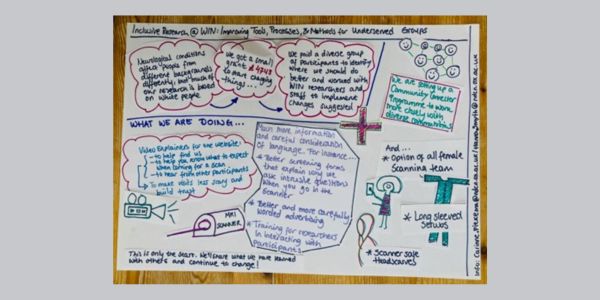 Inclusive Research @ WIN: Improving Tools, Processes, & Methods for Underserved Groups
Neurological conditions
affect people from
different backgrounds
differently, but much of
our research is based
on white people
We got a small
grant of
to start changing
things...
We paid a diverse group
of participants to identify
where we should do
better and worked with
WIN researchers and
staff to implement
changes suggested
We are setting up a
Community Connector
Programme to work
more closely with
diverse communities!
WHAT WE ARE DOING...
Video Explainers for the website:
- to help find us
- to help you know what to expect
when coming for a scan
- to hear from other participants
- To make visits less scary and
build trust
MRI
SCANNER
Much more information
and careful consideration
of language. For instance...
* Better screening forms
that explain why we
ask intrusive questions
when you go in the
scanner
* Better and more carefully
worded advertising
* Training for researchers
in interacting with
participants
And...
* Option of all female
scanning team
* Long sleeved
* Scanner safe
Headscarves
This is only the start. We'll share what we have learned
with others and continue to change!